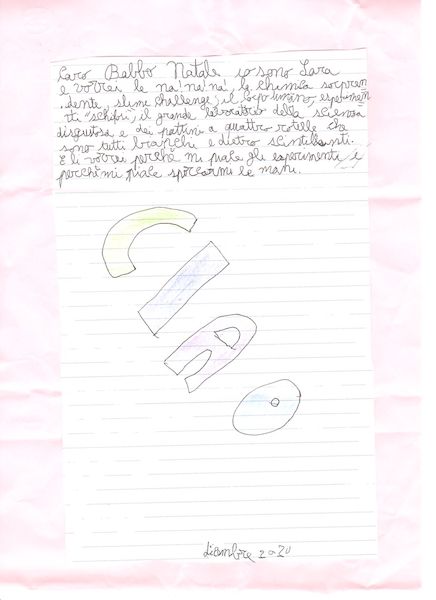 Caro Babbo Natale io sono Sara
e vorrei le na! na! na!, la chimica sorpren
dente, slime challenge, il corpo umano, esperimen
ti "schifosi", il grande laboratorio della scienza
disgustosa e dei pattini a quattro rotelle che
sono tutti bianchi e dietro scintillanti.
E li vorrei perchè mi piace gli esperimenti e
perchè mi piace sporcarmi le mani.
CIAO
dicembre 2020